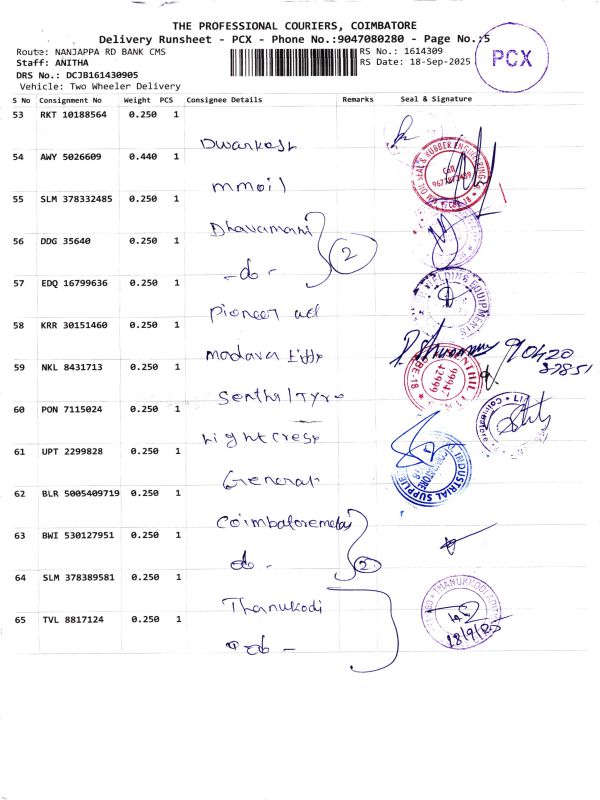 THE PROFESSIONAL COURIERS, COIMBATORE
Delivery Runsheet - PCX - Phone No.:9047080280 - Page No.:5
Route: NANJAPPA RD BANK CMS
RS No.: 1614309
Staff: ANITHA
RS Date: 18-Sep-2025
DRS No.: DCJB161430905
Vehicle: Two Wheeler Delivery
PCX
S No Consignment No Weight PCS Consignee Details Remarks Seal & Signature
53 RKT 10188564 0.250 1
Dwarkesh
54 AWY 5026609 0.440 1
mmoil
55 SLM 378332485 0.250 1
Dhavamani
56 DDG 35640 0.250 1
- do - 2
57 EDQ 16799636 0.250 1
pioneer ad
58 KRR 30151460 0.250 1
90420
37851
59 NKL 8431713 0.250 1
60 PON 7115024 0.250 1
Lightcresp
61 UPT 2299828 0.250 1
General
62 BLR 5005409719 0.250 1
63 BWI 530127951 0.250 1
do - 2
64 SLM 378389581 0.250 1
Thanukodi
65 TVL 8817124 0.250 1
do -
18/9/25